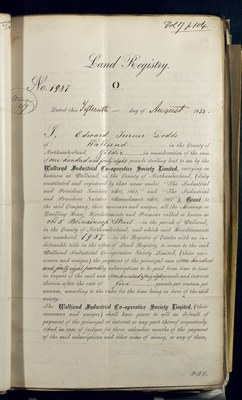 Vol 17 p 104
Land Registry.
No. 1987
O
Dated this Fifteenth day of August 18
I, Edward Turner Dodds
of Wallsend in the County of
Northumberland, in consideration of the sum
of one hundred and forty eight pounds sterling lent to me by the
Wallsend Industrial Co-operative Society Limited, carrying on
business at Wallsend, in the County of Northumberland, (duly
constituted and registered by that name under "The Industrial
and Provident Societies Act, and "The Industrial
and Provident Societies Amendment Act, Grant to
the said Company, their successors and assigns, all the Messuage or
Dwelling House, Hereditaments and Premises called or known as
Street in the parish of Wallsend,
in the County of Northumberland, and which said Hereditaments
are numbered 1987 in the Register of Estates with an in-
defeasible title in the office of Land Registry, to secure to the said
Wallsend Industrial Co-operative Society Limited, (their suc-
cessors and assigns) the payment of the principal sum of one hundred
and forty eight pounds by subscriptions to be paid from time to time
in respect of the said sum of one hundred forty eight pounds and interest
thereon after the rate of five pounds per centum per
annum, according to the rules for the time being in force of the said
society.
The Wallsend Industrial Co-operative Society Limited, (their
successors and assigns) shall have power to sell on default of
payment of the principal or interest or any part thereof respectively.
And in case of failure for three calendar months of the payment
of the said subscriptions and other sums of money, or any of them,